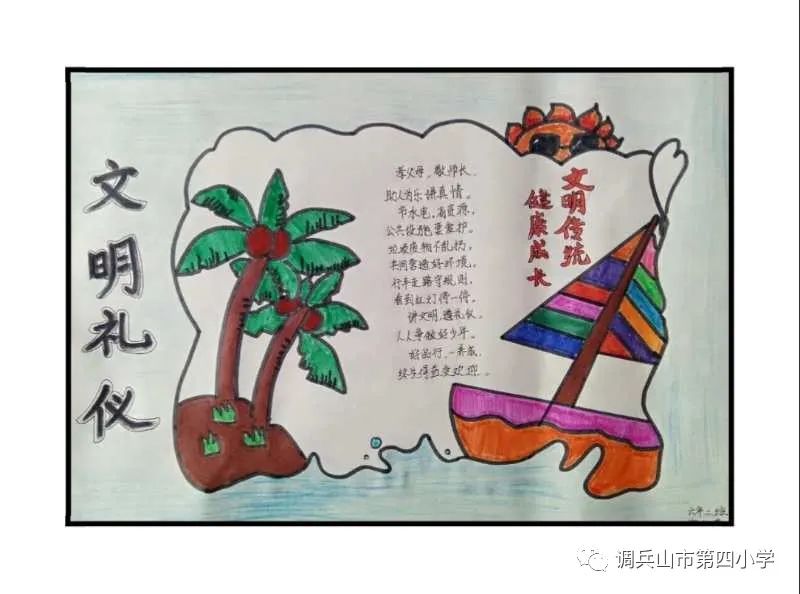 文明礼仪
孝父母，敬师长，
助人为乐讲真情。
节水电，省资源，
公共设施要爱护。
垃圾废物不乱扔，
共同营造好环境。
行车走路守规则，
看到红灯停一停。
讲文明，遵礼仪，
人人争做好少年。
好品行，一养成，
终生得益受欢迎。
文明传统
健康成长
六年二班
调兵山市第四小学